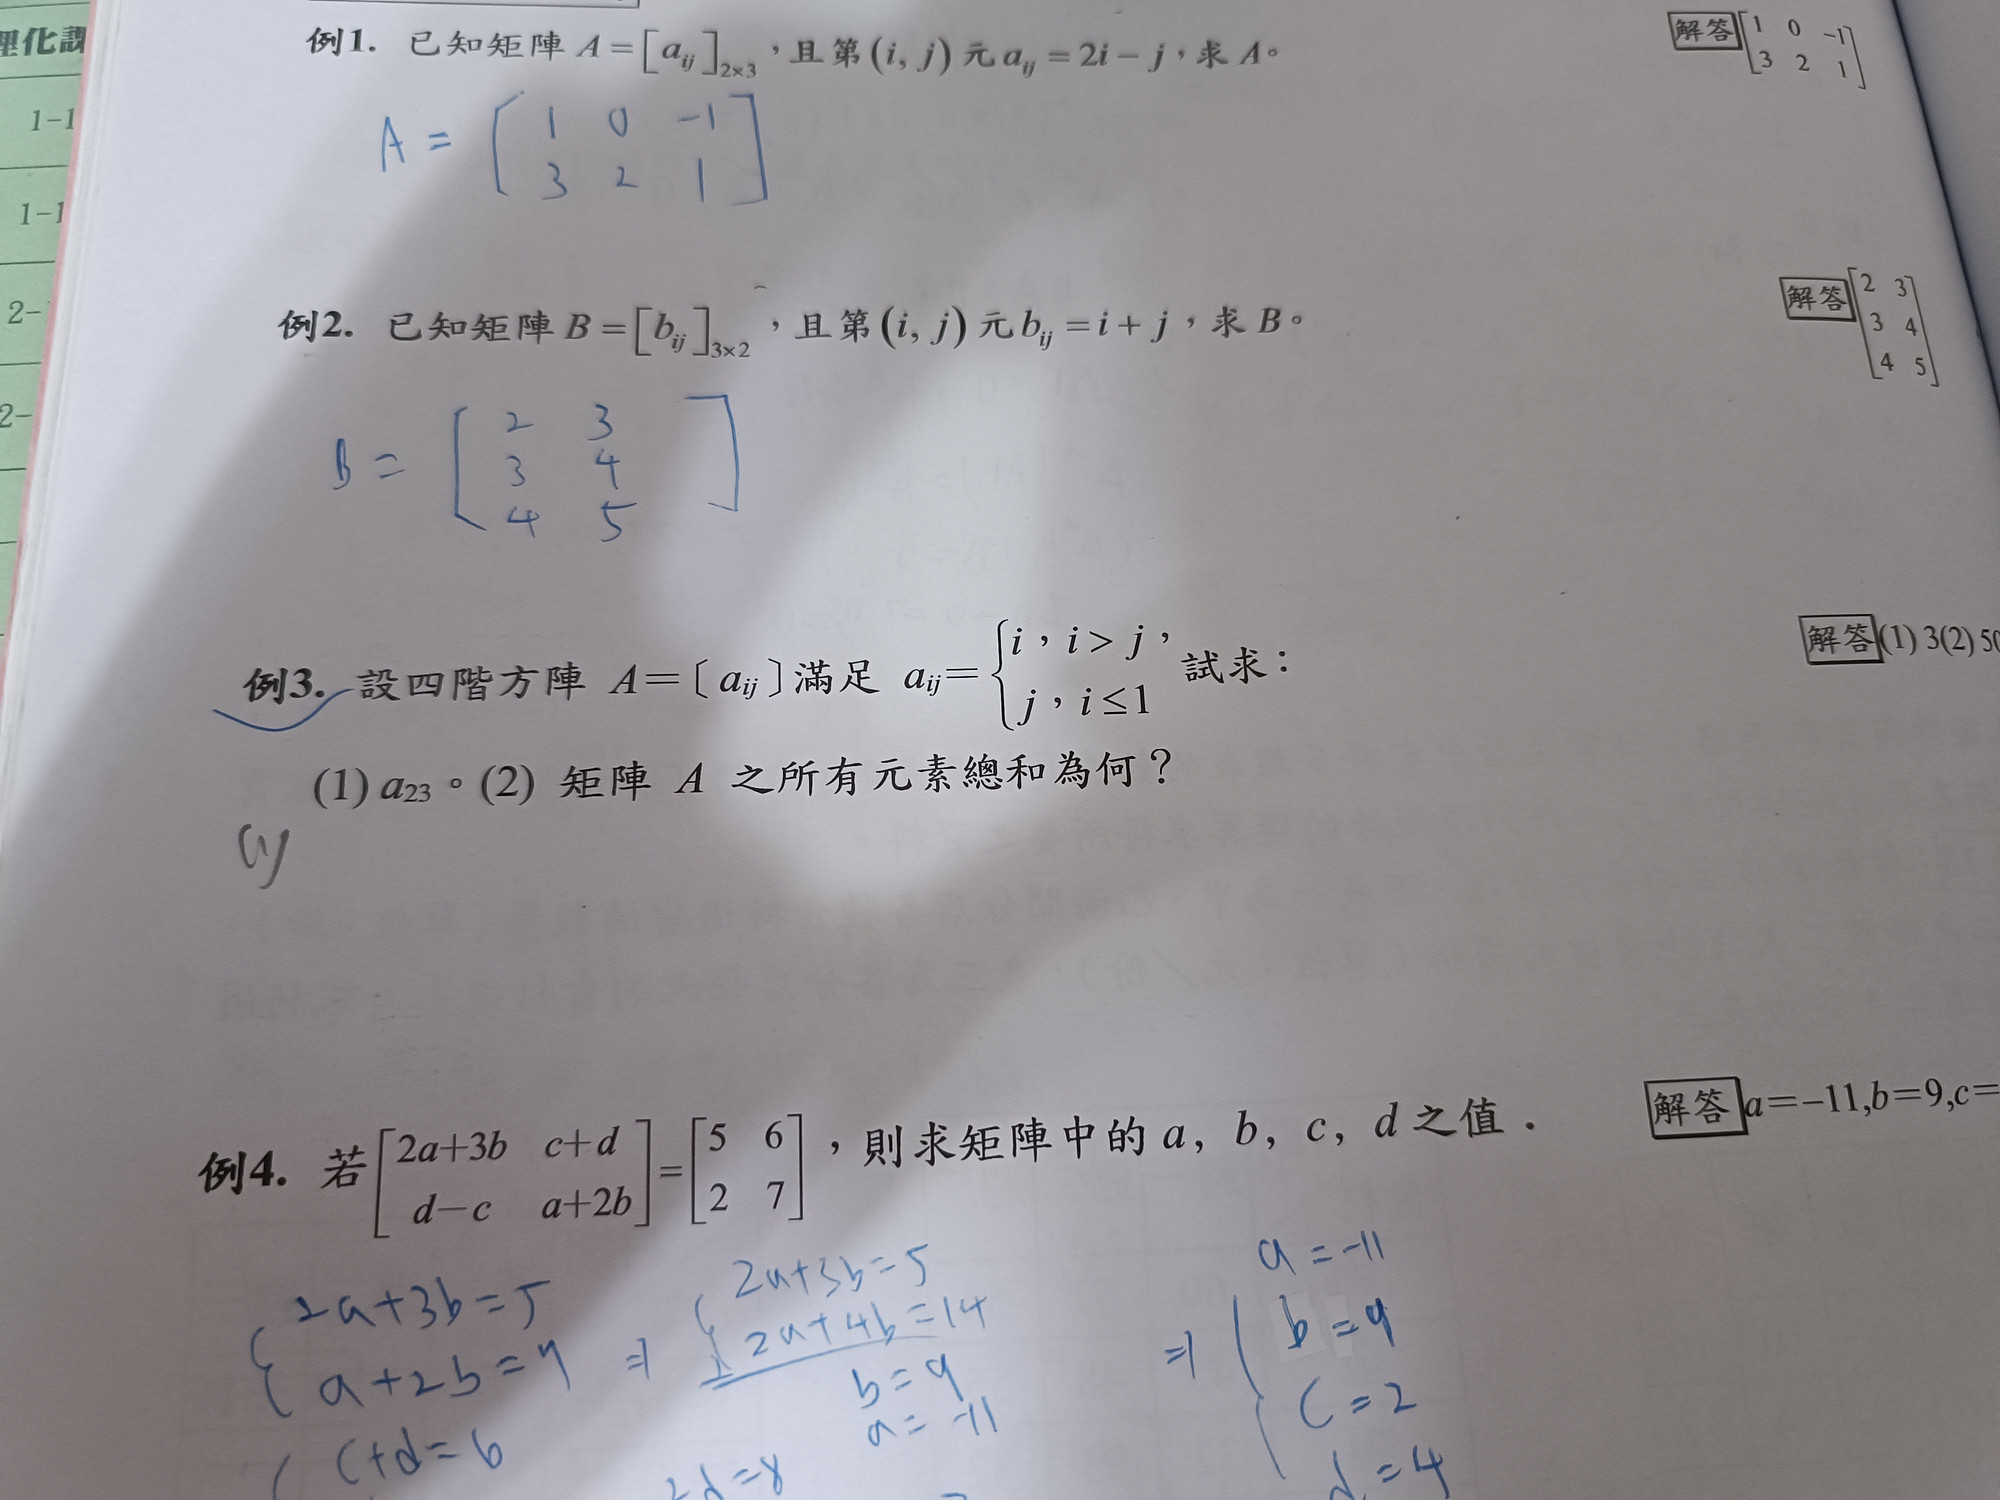 理化課
1-1
1-1
2-
2-
例1. 已知矩陣 A=[a_ij]_2×3，且第(i, j)元 a_ij = 2i − j，求 A。
解答 [1 0 -1
3 2 1]
A = [1 0 -1
3 2 1]
例2. 已知矩陣 B=[b_ij]_3×2，且第(i, j)元 b_ij = i + j，求 B。
解答 [2 3
3 4
4 5]
B = [2 3
3 4
4 5]
例3. 設四階方陣 A＝〔a_ij〕滿足 a_ij＝{i，i > j，
j，i ≤ 1 試求：
解答 (1) 3(2) 50
(1) a_23。(2) 矩陣 A 之所有元素總和為何？
(1)
例4. 若[2a+3b c+d
d−c a+2b]=[5 6
2 7]，則求矩陣中的 a, b, c, d 之值．
解答 a＝−11,b＝9,c＝
{2a+3b=5
a+2b=7
⇒ {2a+3b=5
2a+4b=14
b=9
a=-11
⇒ {a=-11
b=9
c=2
d=4
c+d=6
2d=8